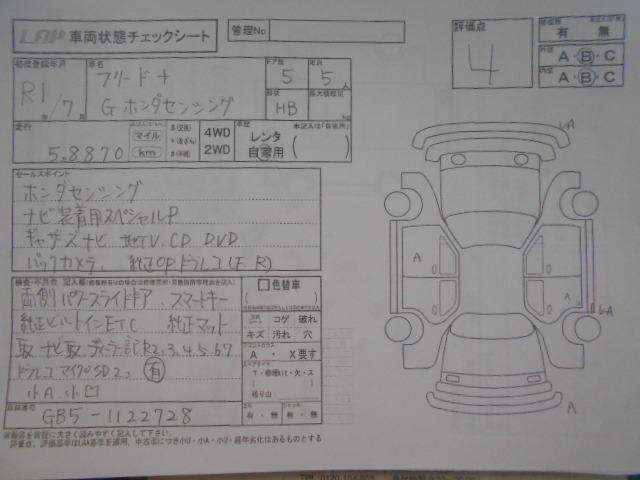 LAP 車両状態チェックシート
管理No
評価点
4
有 無
外装 A・B・C
内装 A・B・C
初度登録年月
R1年/7月
車名
フリード+
G ホンダセンシング
ドア数
5
定員
5人
形状
HB
最大積載量
kg
走行
5.8870
マイル
km
4WD
2WD
車歴
レンタ
自家用
セールスポイント
ホンダセンシング
ナビ装着用スペシャルP
ギャザズナビ 地TV.CD DVD
バックカメラ. 純正OPドラレコ(F R)
検査・不具合 記入欄
両側パワースライドドア. スマートキー
純正ビルトインETC 純正マット
取 ナビ取. ディーラー記R2.3.4.5.6.7
ドラレコ マイクロSD2コ 有
小A 小凹
色替車
コゲ 破れ
キズ 汚れ 穴
A ・ X要す
T・修理kit・欠・ス
残り山
有・無 有・無
車体番号
GB5-1122728
A
A
A
LA
LA